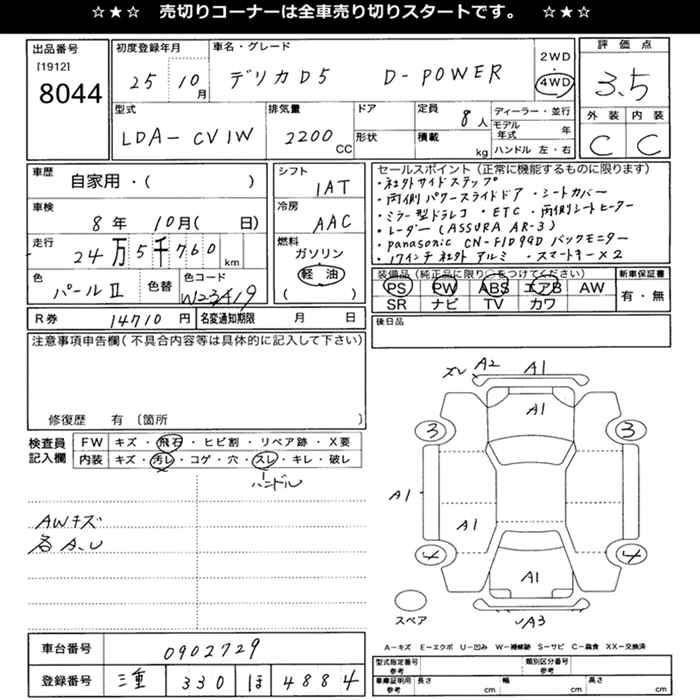 ☆★☆ 売切りコーナーは全車売り切りスタートです。 ☆★☆
出品番号
[1912]
8044
初度登録年月
25 10月
車名・グレード
デリカD5 D-POWER
2WD
・
4WD
評価点
3.5
外装 内装
C C
型式
LDA-CV1W
排気量
2200
CC
ドア
形状
定員
8人
積載
kg
ディーラー・並行
モデル年式 年
ハンドル 左・右
車歴
自家用・( )
車検
8年 10月( 日)
走行
24万5千760km
色
パールⅡ
色替
色コード
W23419
シフト
1AT
冷房
AAC
燃料
ガソリン
軽油
( )
セールスポイント(正常に機能するものに限ります)
・社外サイドステップ
・両側パワースライドドア ・シートカバー
・ミラー型ドラレコ ・ETC ・両側シートヒーター
・レーダー(ASSURA AR-3)
・panasonic CN-F1D99D バックモニター
・17インチ社外アルミ ・スマートキー×2
装備品(純正品に限り○をつけてください)
PS PW ABS エアB AW
SR ナビ TV カワ
新車保証書
有・無
R券 14710円
名変通知期限 月 日
後日品
注意事項申告欄(不具合内容等は具体的に記入して下さい)
修復歴 有 〔箇所 〕
検査員記入欄
FW キズ・飛石・ヒビ割・リペア跡・X要
内装 キズ・汚レ・コゲ・穴・スレ・キレ・破レ
ハンドル
AWキズ
各A、U
ズレ A2 A1
A1
3 3
A1
A1
4 4
A1
A3
スペア
車台番号 0902729
登録番号 三重 330 ほ 4884
A-キズ E-エクボ U-凹み W-補修跡 S-サビ C-腐食 XX-交換済
型式指定番号
参考
類別区分番号
参考
車庫証明用
参考
長さ cm
幅 cm
高さ cm